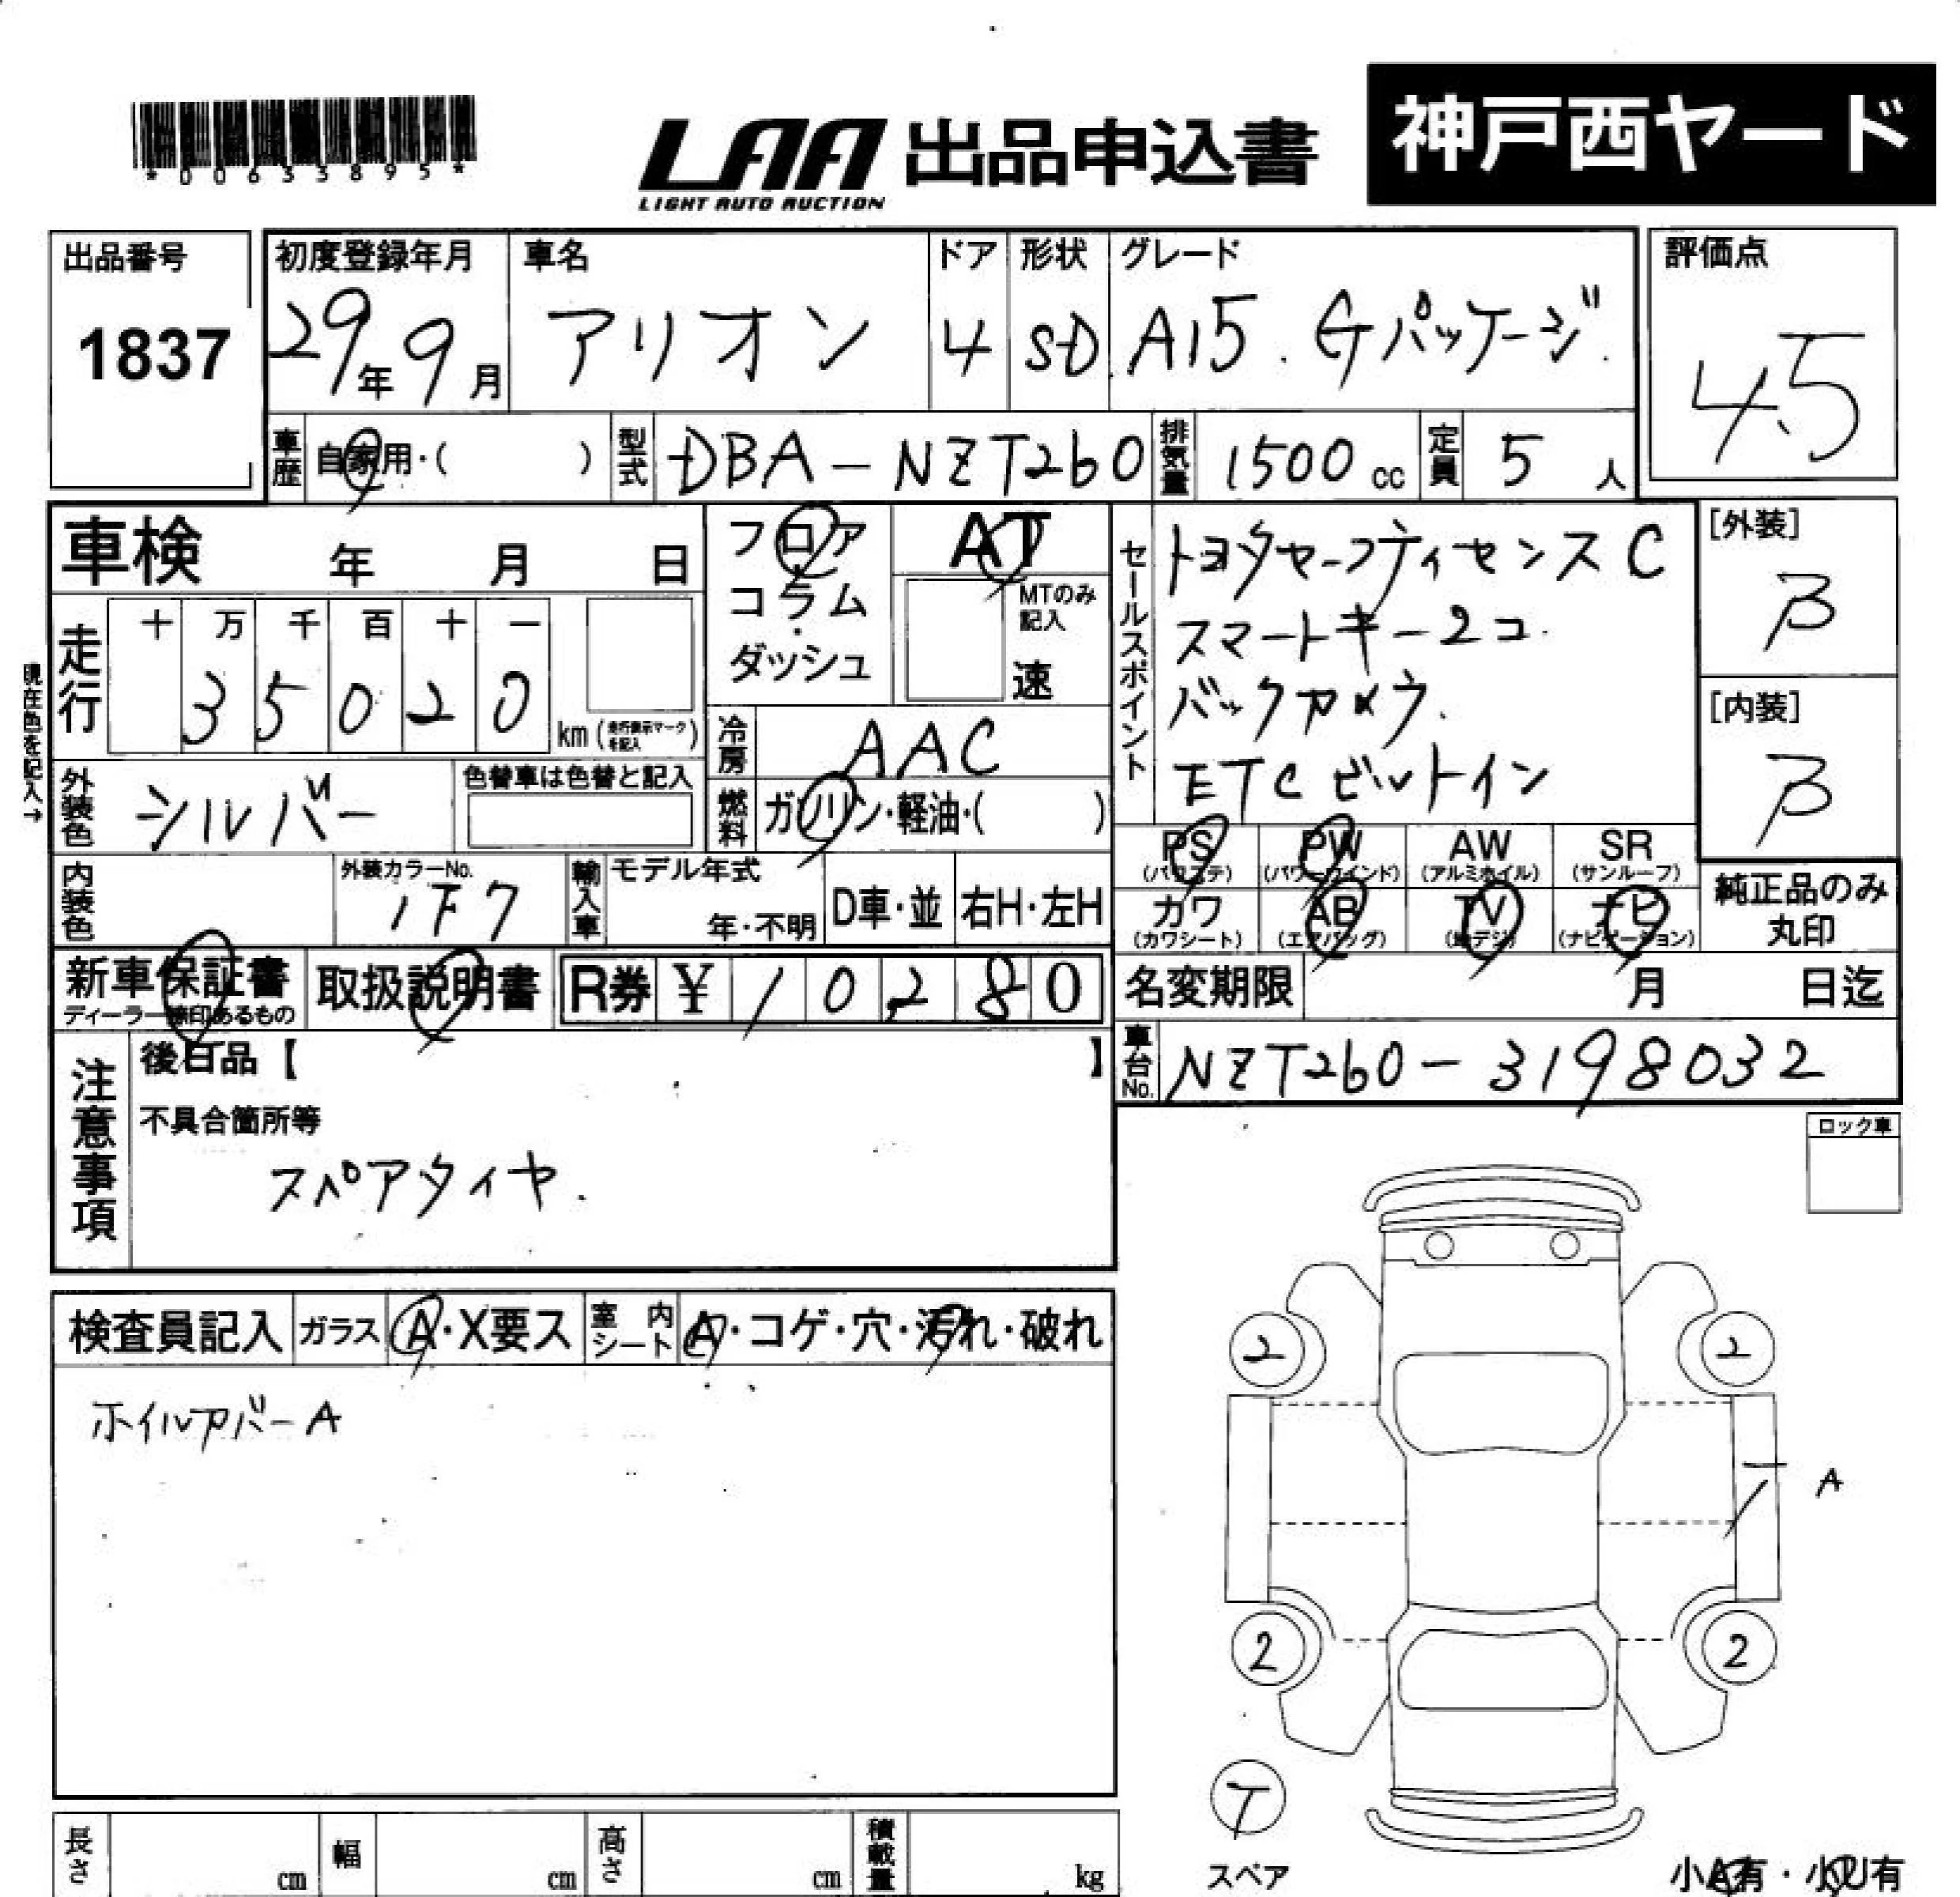 *00633895*
LAA
LIGHT AUTO AUCTION
出品申込書
神戸西ヤード
出品番号
1837
初度登録年月
29年9月
車名
アリオン
ドア
4
形状
SD
グレード
A15.Gパッケージ.
評価点
4.5
車歴
自家用・( )
型式
DBA-NZT260
排気量
1500cc
定員
5人
車検 年 月 日
フロア
コラム
・
ダッシュ
AT
MTのみ記入
速
セールスポイント
トヨタセーフティセンスC
スマートキー2コ.
バックカメラ.
ETCビルトイン
[外装]
B
[内装]
B
現在色を記入→
走行
十 万 千 百 十 一
3 5 0 2 0
km(走行表示マークを記入)
冷房
AAC
外装色
シルバー
色替車は色替と記入
燃料
ガソリン・軽油・( )
PS
(パワステ)
PW
(パワーウインド)
AW
(アルミホイル)
SR
(サンルーフ)
カワ
(カワシート)
AB
(エアバッグ)
TV
(地デジ)
ナビ
(ナビゲーション)
純正品のみ
丸印
内装色
外装カラーNo.
1F7
輸入車
モデル年式
年・不明
D車・並
右H・左H
新車保証書
ディーラー捺印あるもの
取扱説明書
R券 ¥ 1 0 2 8 0
名変期限 月 日迄
注意事項
後日品【 】
不具合箇所等
スペアタイヤ.
車台No.
NZT260-3198032
ロック車
検査員記入
ガラス
A・X要ス
室内シート
A・コゲ・穴・汚れ・破れ
ホイルカバーA
2
2
A
2
2
T
スペア
小A有・小U有
長さ
cm
幅
cm
高さ
cm
積載量
kg